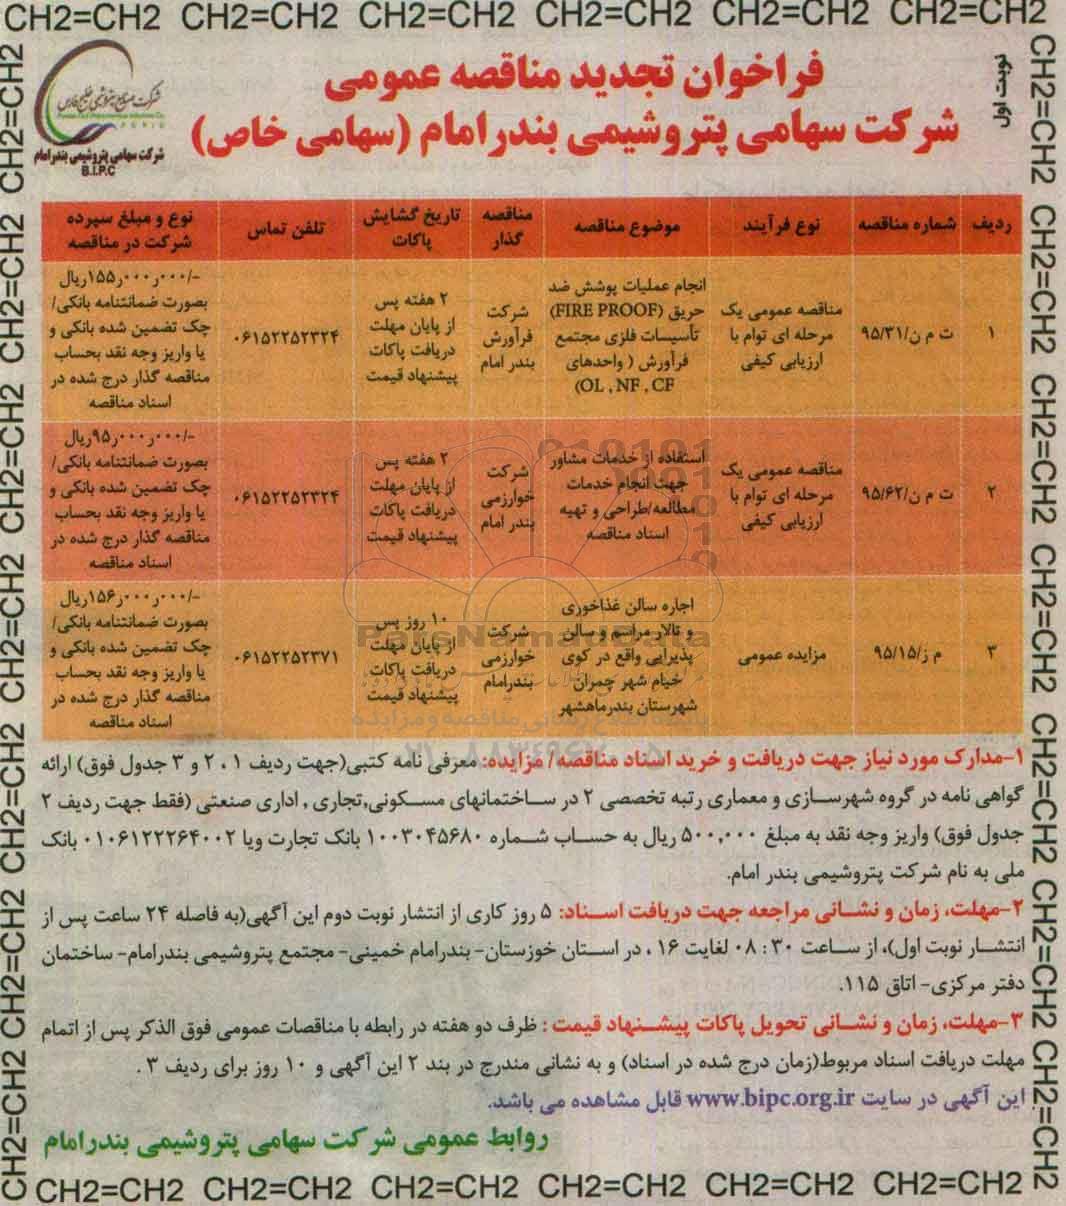 CH2=CH2 CH2=CH2 CH2=CH2 CH2=CH2 CH2=CH2 CH2=CH2
نوبت اول
فراخوان تجدید مناقصه عمومی
شرکت سهامی پتروشیمی بندرامام (سهامی خاص)
شرکت صنایع پتروشیمی خلیج فارس
شرکت سهامی پتروشیمی بندرامام
B.I.P.C
ردیف شماره مناقصه نوع فرآیند موضوع مناقصه مناقصه گذار تاریخ گشایش پاکات تلفن تماس نوع و مبلغ سپرده شرکت در مناقصه
۱
ت م ن/۹۵/۳۱
مناقصه عمومی یک
مرحله ای توام با
ارزیابی کیفی
انجام عملیات پوشش ضد
حریق (FIRE PROOF)
تأسیسات فلزی مجتمع
فرآورش ( واحدهای
OL , NF , CF)
شرکت
فرآورش
بندر امام
۲ هفته پس
از پایان مهلت
دریافت پاکات
پیشنهاد قیمت
۰۶۱۵۲۲۵۲۳۲۴
-/۱۵۵ر۰۰۰ر۰۰۰ریال
بصورت ضمانتنامه بانکی/
چک تضمین شده بانکی و
یا واریز وجه نقد بحساب
مناقصه گذار درج شده در
اسناد مناقصه
۲
ت م ن/۹۵/۶۲
مناقصه عمومی یک
مرحله ای توام با
ارزیابی کیفی
استفاده از خدمات مشاور
جهت انجام خدمات
مطالعه/طراحی و تهیه
اسناد مناقصه
شرکت
خوارزمی
بندر امام
۲ هفته پس
از پایان مهلت
دریافت پاکات
پیشنهاد قیمت
۰۶۱۵۲۲۵۲۳۲۴
-/۹۵ر۰۰۰ر۰۰۰ریال
بصورت ضمانتنامه بانکی/
چک تضمین شده بانکی و
یا واریز وجه نقد بحساب
مناقصه گذار درج شده در
اسناد مناقصه
۳
م ز/۹۵/۱۵
مزایده عمومی
اجاره سالن غذاخوری
و تالار مراسم و سالن
پذیرایی واقع در کوی
خیام شهر چمران
شهرستان بندرماهشهر
شرکت
خوارزمی
بندرامام
۱۰ روز پس
از پایان مهلت
دریافت پاکات
پیشنهاد قیمت
۰۶۱۵۲۲۵۲۳۷۱
-/۱۵۶ر۰۰۰ر۰۰۰ریال
بصورت ضمانتنامه بانکی/
چک تضمین شده بانکی و
یا واریز وجه نقد بحساب
مناقصه گذار درج شده در
اسناد مناقصه
ParsNamadData
۱-مدارک مورد نیاز جهت دریافت و خرید اسناد مناقصه/ مزایده: معرفی نامه کتبی(جهت ردیف ۱ ، ۲ و ۳ جدول فوق) ارائه
گواهی نامه در گروه شهرسازی و معماری رتبه تخصصی ۲ در ساختمانهای مسکونی،تجاری , اداری صنعتی (فقط جهت ردیف ۲
جدول فوق) واریز وجه نقد به مبلغ ۵۰۰,۰۰۰ ریال به حساب شماره ۱۰۰۳۰۴۵۶۸۰ بانک تجارت ویا ۰۱۰۶۱۲۲۲۶۴۰۰۲ بانک
ملی به نام شرکت پتروشیمی بندر امام.
۲-مهلت، زمان و نشانی مراجعه جهت دریافت اسناد: ۵ روز کاری از انتشار نوبت دوم این آگهی(به فاصله ۲۴ ساعت پس از
انتشار نوبت اول)، از ساعت ۳۰ : ۰۸ لغایت ۱۶ ، در استان خوزستان- بندرامام خمینی- مجتمع پتروشیمی بندرامام- ساختمان
دفتر مرکزی- اتاق ۱۱۵.
۳-مهلت، زمان و نشانی تحویل پاکات پیشنهاد قیمت : ظرف دو هفته در رابطه با مناقصات عمومی فوق الذکر پس از اتمام
مهلت دریافت اسناد مربوط(زمان درج شده در اسناد) و به نشانی مندرج در بند ۲ این آگهی و ۱۰ روز برای ردیف ۳ .
این آگهی در سایت www.bipc.org.ir قابل مشاهده می باشد.
روابط عمومی شرکت سهامی پتروشیمی بندرامام
CH2=CH2 CH2=CH2 CH2=CH2 CH2=CH2 CH2=CH2 CH2=CH2